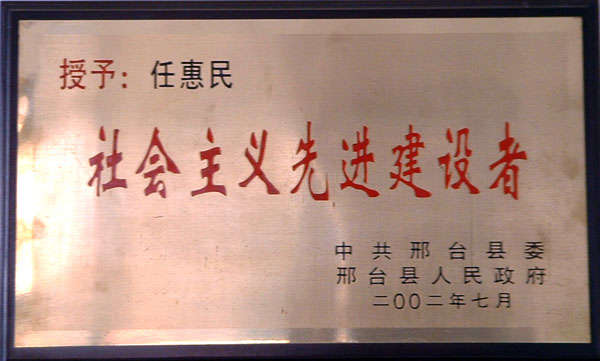 授予：任惠民
社会主义先进建设者
中共邢台县委
邢台县人民政府
二〇〇二年七月